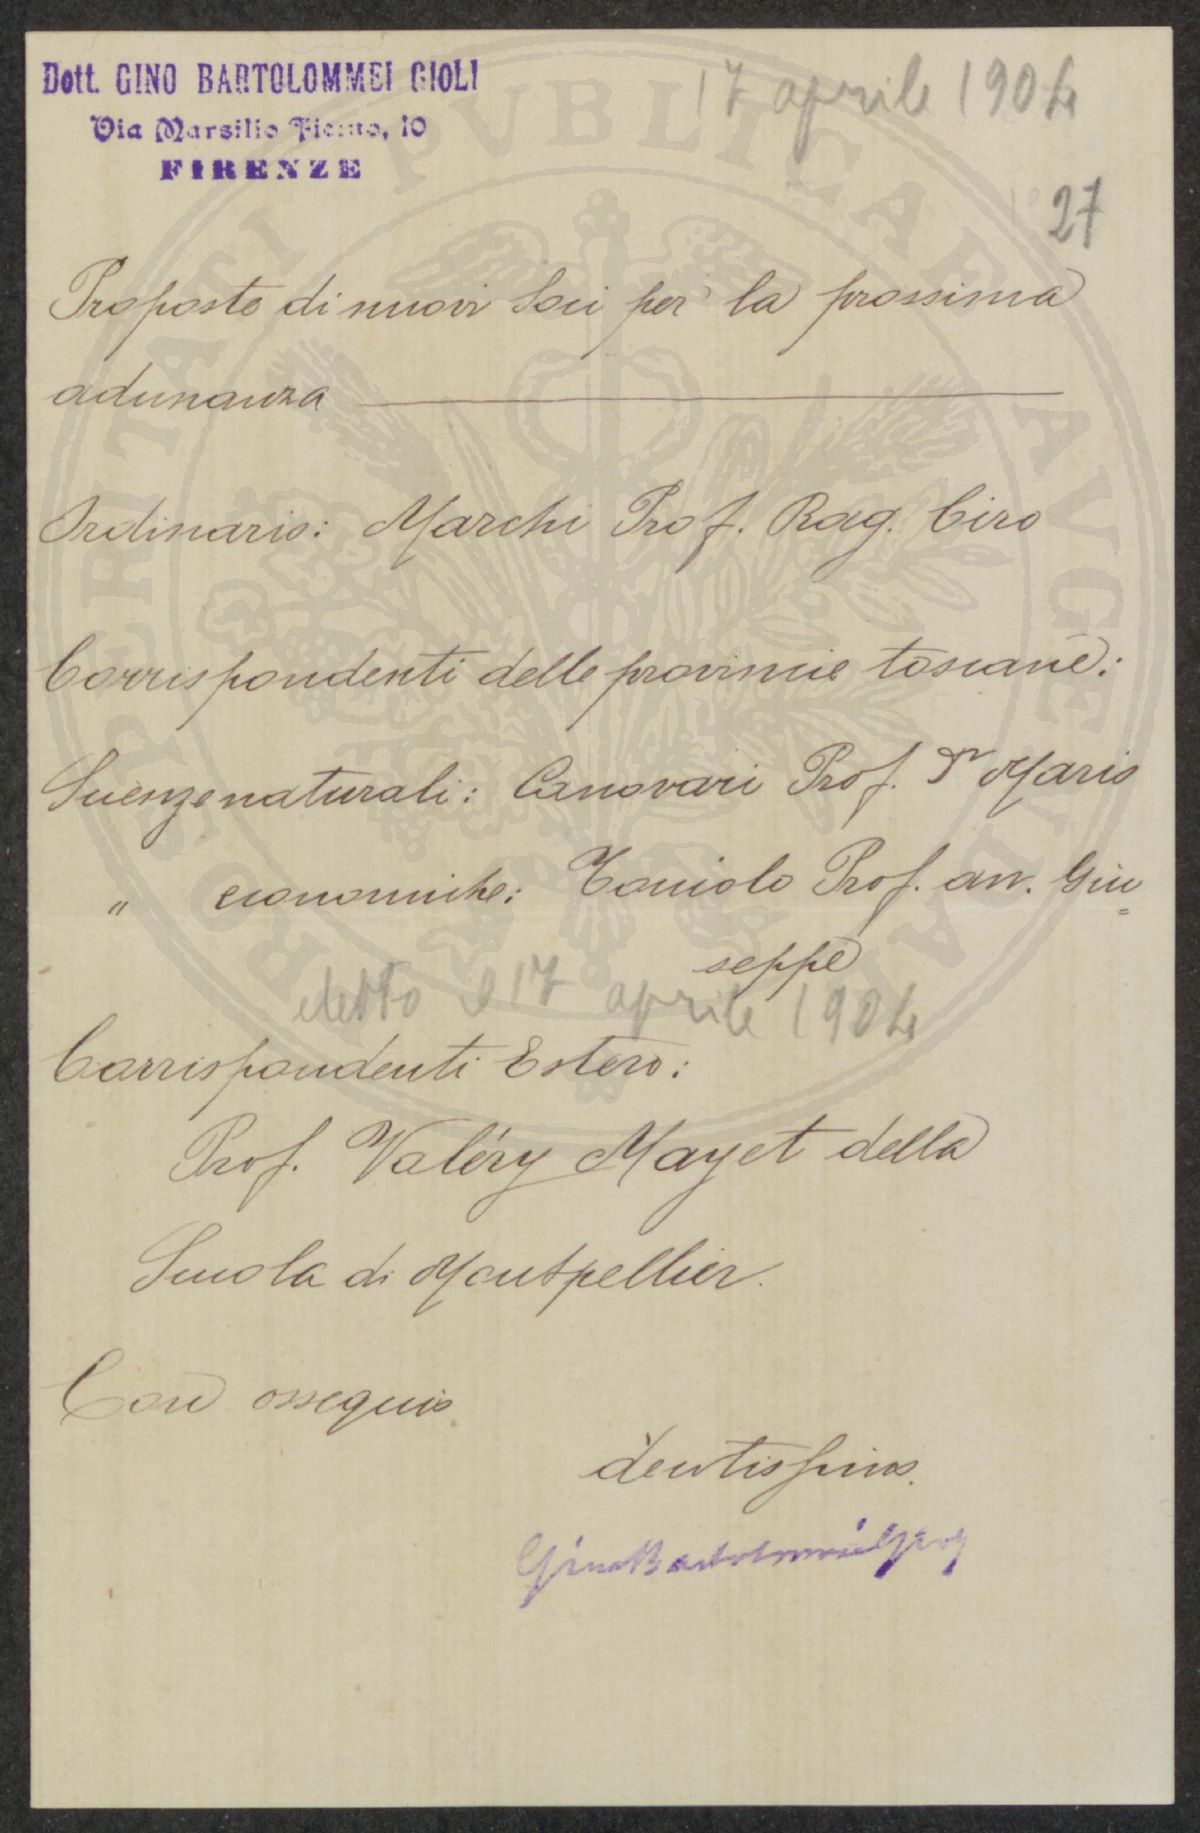 Dott. GINO BARTOLOMMEI GIOLI
Via Marsilio Ficino, 10
FIRENZE
17 aprile 1904
27
Proposte di nuovi Soci per la prossima
adunanza
Ordinario: Marchi Prof. Rag. Ciro
Corrispondenti delle provincie toscane:
Scienze naturali: Canavari Prof. Dr Mario
" economiche: Toniolo Prof. avv. Giu=
seppe
eletto il 17 aprile 1904
Corrispondenti Estero:
Prof. Valéry Mayet della
Scuola di Montpellier.
Con ossequio
devotissimo.
Gino Bartolommei Gioli
PROSPERITATI PUBLICAE AUGENDAE